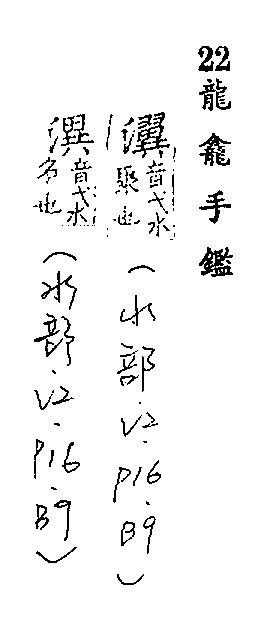 22龍龕手鑑
瀷音弋水聚也(水部.V2.P16.B9)
潩音弋水名也(水部.V2.P16.B9)